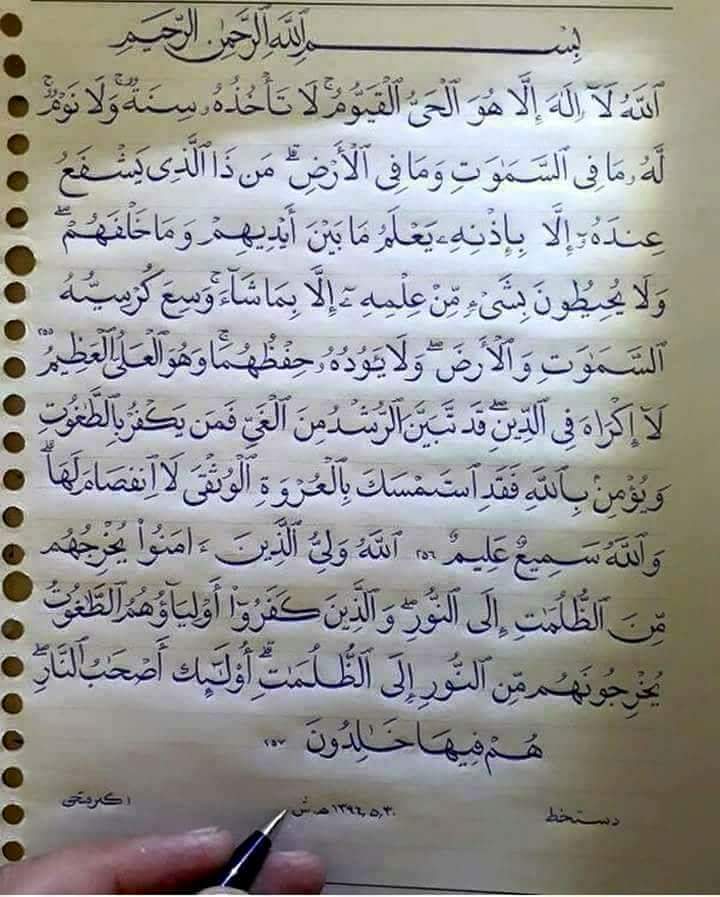 بِسْمِ اللَّهِ الرَّحْمَٰنِ الرَّحِيمِ
اللَّهُ لَآ إِلَٰهَ إِلَّا هُوَ الْحَيُّ الْقَيُّومُ ۚ لَا تَأْخُذُهُۥ سِنَةٌ وَلَا نَوْمٌ ۚ
لَّهُۥ مَا فِى السَّمَٰوَٰتِ وَمَا فِى الْأَرْضِ ۗ مَن ذَا الَّذِى يَشْفَعُ
عِندَهُۥٓ إِلَّا بِإِذْنِهِۦ ۚ يَعْلَمُ مَا بَيْنَ أَيْدِيهِمْ وَمَا خَلْفَهُمْ ۖ
وَلَا يُحِيطُونَ بِشَىْءٍ مِّنْ عِلْمِهِۦٓ إِلَّا بِمَا شَآءَ ۚ وَسِعَ كُرْسِيُّهُ
السَّمَٰوَٰتِ وَالْأَرْضَ ۖ وَلَا يَـُٔودُهُۥ حِفْظُهُمَا ۚ وَهُوَ الْعَلِىُّ الْعَظِيمُ ٢٥٥
لَآ إِكْرَاهَ فِى الدِّينِ ۖ قَد تَّبَيَّنَ الرُّشْدُ مِنَ الْغَىِّ ۚ فَمَن يَكْفُرْ بِالطَّٰغُوتِ
وَيُؤْمِنۢ بِاللَّهِ فَقَدِ اسْتَمْسَكَ بِالْعُرْوَةِ الْوُثْقَىٰ لَا انفِصَامَ لَهَا ۗ
وَاللَّهُ سَمِيعٌ عَلِيمٌ ٢٥٦ اللَّهُ وَلِىُّ الَّذِينَ ءَامَنُوا۟ يُخْرِجُهُم
مِّنَ الظُّلُمَٰتِ إِلَى النُّورِ ۖ وَالَّذِينَ كَفَرُوٓا۟ أَوْلِيَآؤُهُمُ الطَّٰغُوتُ
يُخْرِجُونَهُم مِّنَ النُّورِ إِلَى الظُّلُمَٰتِ ۗ أُو۟لَٰٓئِكَ أَصْحَٰبُ النَّارِ ۖ
هُمْ فِيهَا خَٰلِدُونَ ٢٥٧
دستخط ١٣٩٤,٥,٣٠ هـ ش